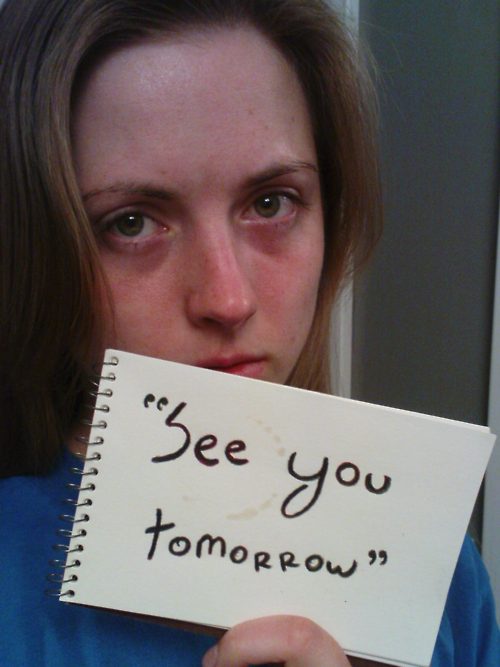 “See you
tomorrow”